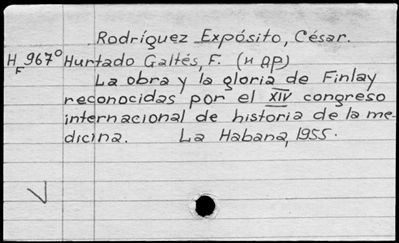 Rodríguez Expósito, César.
HF 967° Hurtado Galtés, F. (и AP)
La obra y la gloria de Finlay
reconocidas por el XIV congreso
internacional de historia de la me-
dicina. La Habana, 1955.